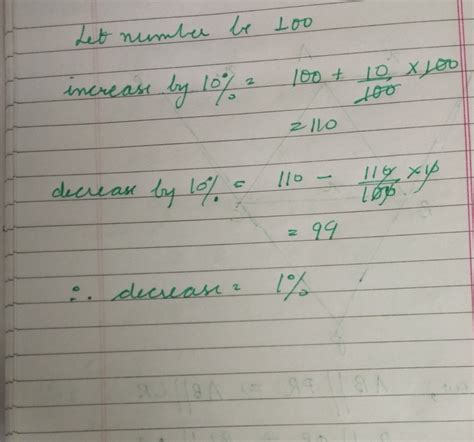 Let number be 100
increase by 10% = 100 + 10/100 × 100
= 110
decrease by 10% = 110 - 110/100 × 10
= 99
∴ decrease = 1%